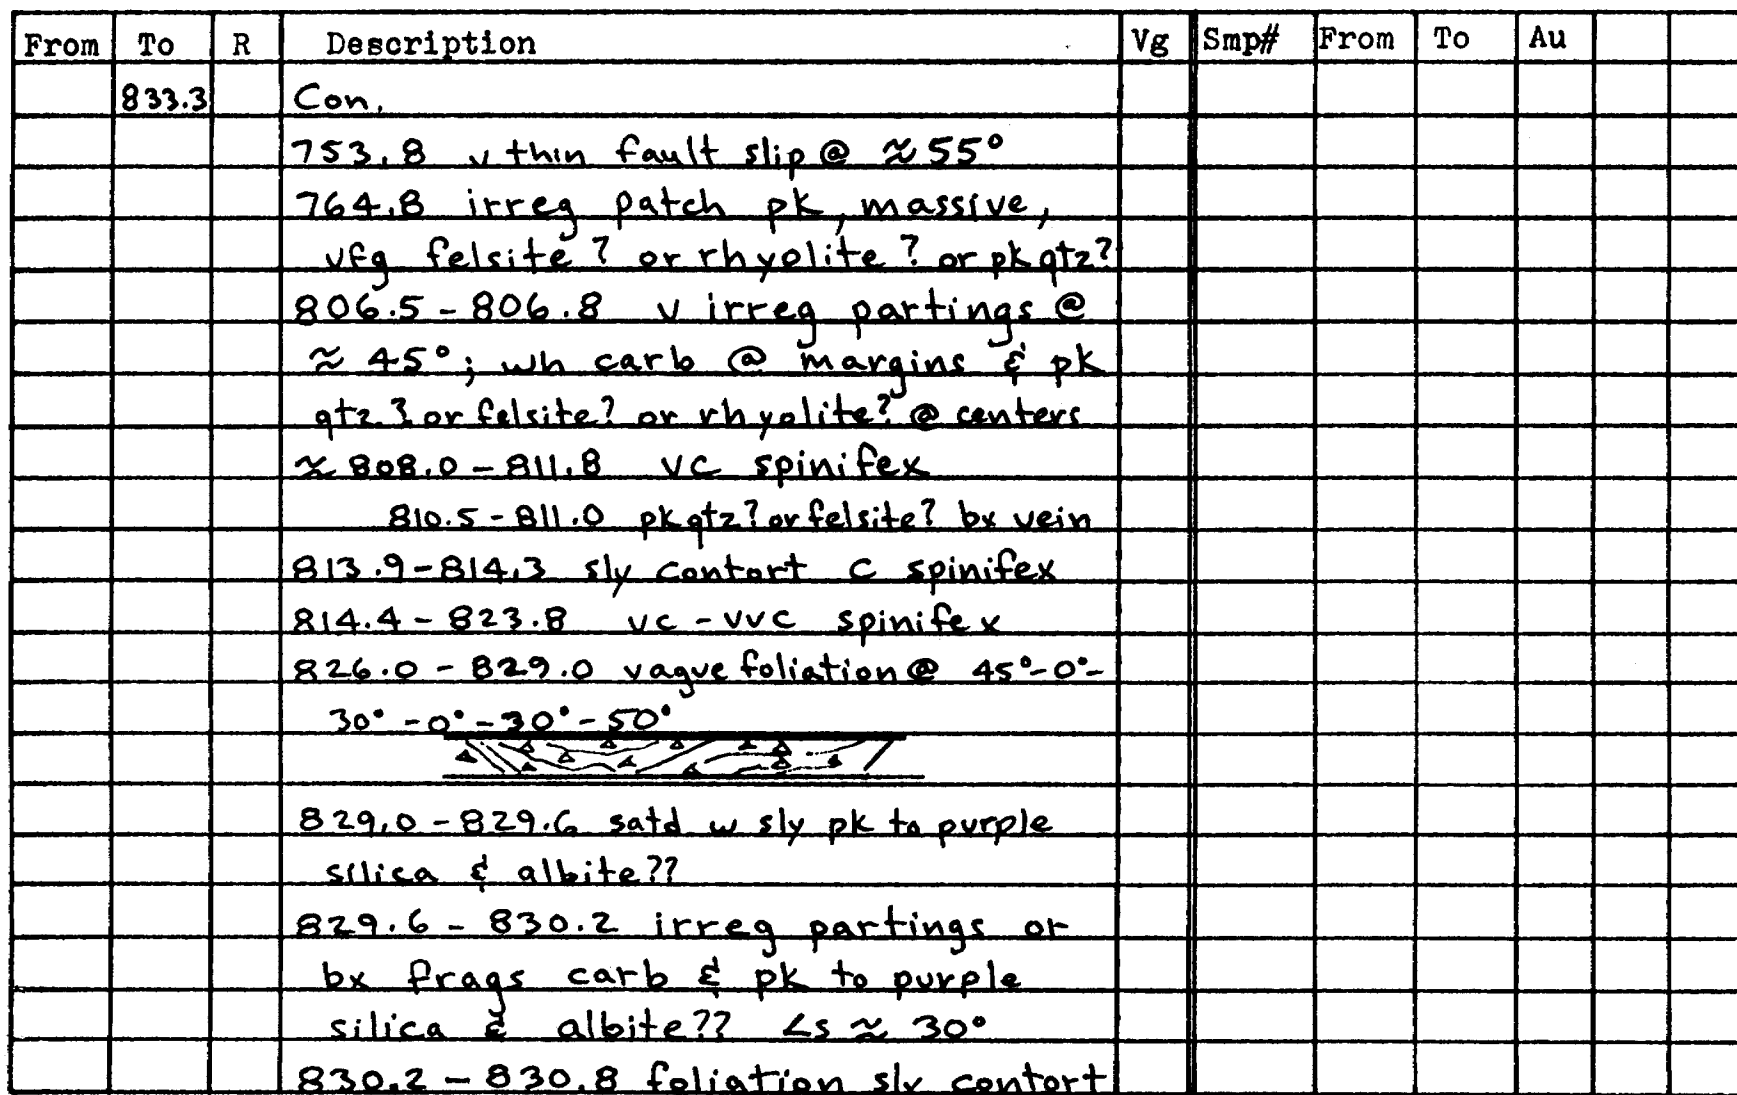 From To R Description Vg Smp# From To Au
833.3 Con.
753.8 v thin fault slip @ ≈ 55°
764.8 irreg patch pk, massive,
vfg felsite? or rhyolite? or pk qtz?
806.5 - 806.8 v irreg partings @
≈ 45°; wh carb @ margins & pk
qtz? or felsite? or rhyolite? @ centers
≈ 808.0 - 811.8 vc spinifex
810.5 - 811.0 pk qtz? or felsite? bx vein
813.9 - 814.3 sly contort c spinifex
814.4 - 823.8 vc - vvc spinifex
826.0 - 829.0 vague foliation @ 45° - 0° -
30° - 0° - 30° - 50°
829.0 - 829.6 satd w sly pk to purple
silica & albite??
829.6 - 830.2 irreg partings or
bx frags carb & pk to purple
silica & albite?? ∠s ≈ 30°
830.2 - 830.8 foliation sly contort